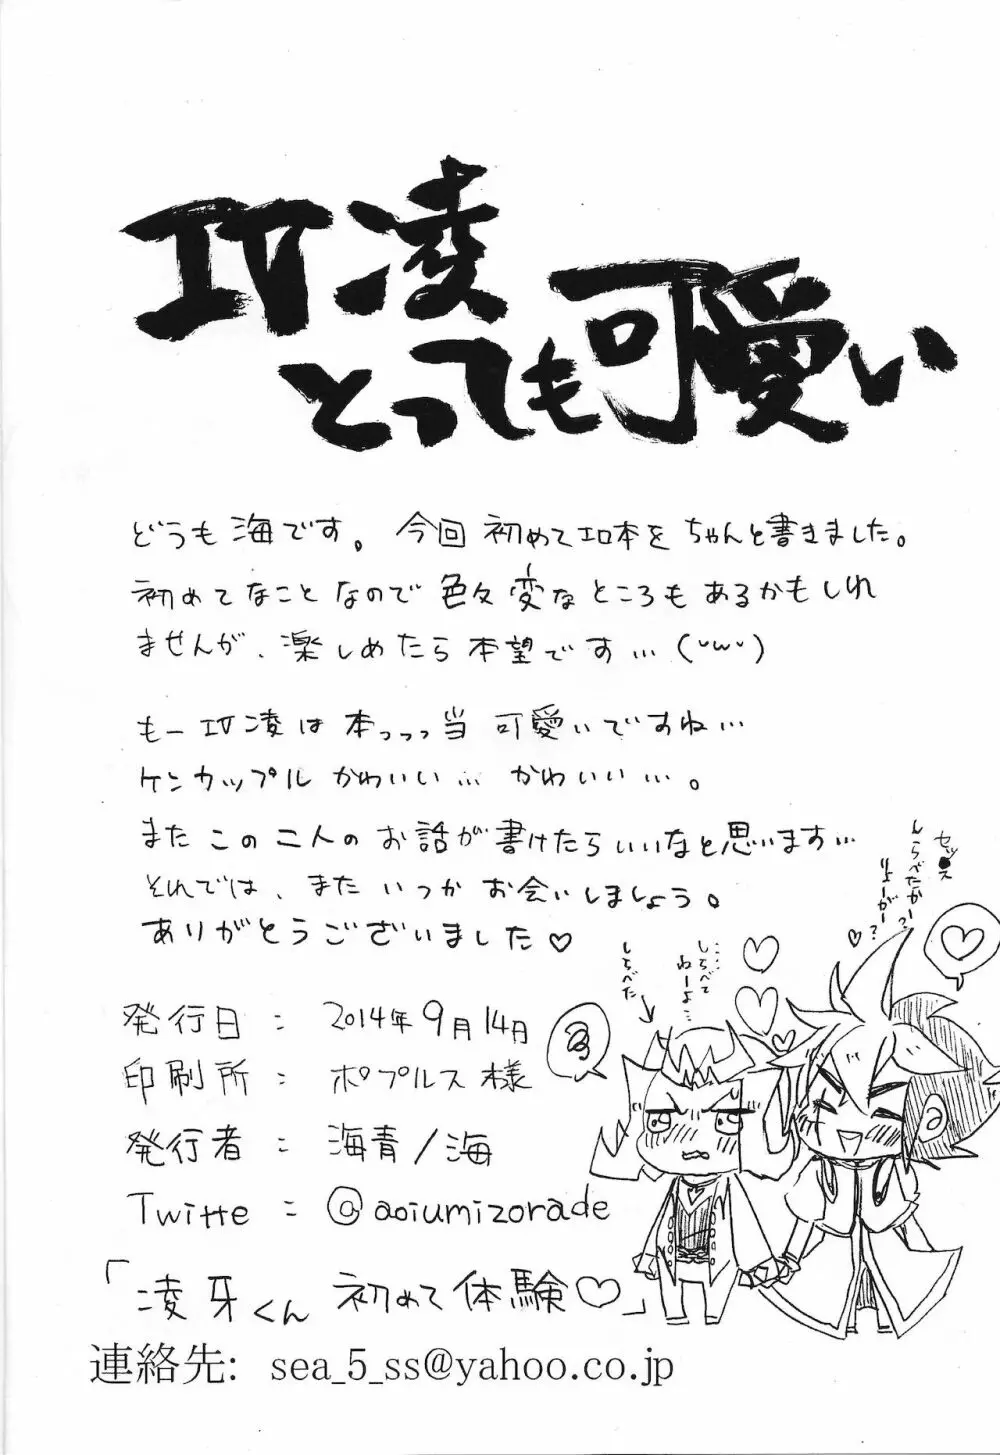 IV凌
とっても可愛い
どうも海です。今回初めてエロ本をちゃんと書きました。
初めてなことなので色々変なところもあるかもしれ
ませんが、楽しめたら本望です…(˘ω˘)
もーIV凌は本っっっ当可愛いですね…
ケンカップルかわいい…かわいい…。
またこの二人のお話が書けたらいいなと思います…
それでは、またいつかお会いしましょう。
ありがとうございました♡
セッ●ス
しらべたかー?
りょーがー?♡
しらべて
ねーよ…
しらべた
発行日:2014年9月14日
印刷所:ポプルス様
発行者:海青/海
Twitte:@aoiumizorade
「凌牙くん初めて体験♡」
連絡先: sea_5_ss@yahoo.co.jp